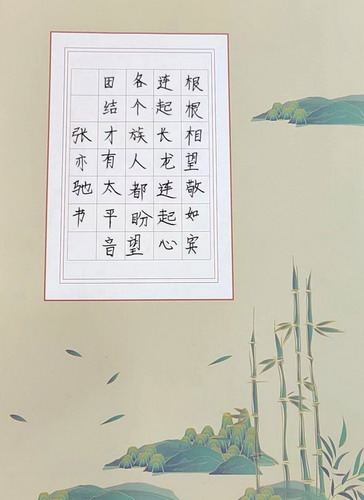 根根相望敬如宾
连起长龙连起心
各个族人都盼望
田结才有太平音
张亦驰书